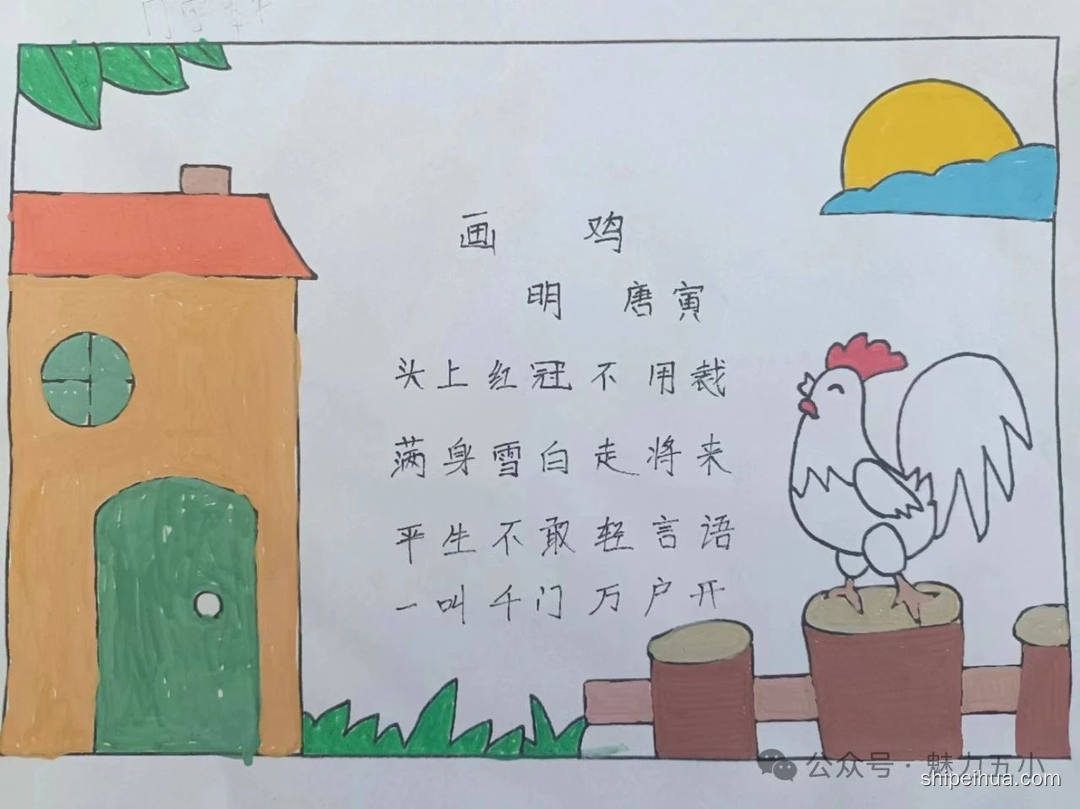 画 鸡
明 唐寅
头上红冠不用裁
满身雪白走将来
平生不敢轻言语
一叫千门万户开
公众号·魅力五小
shipeihua.com